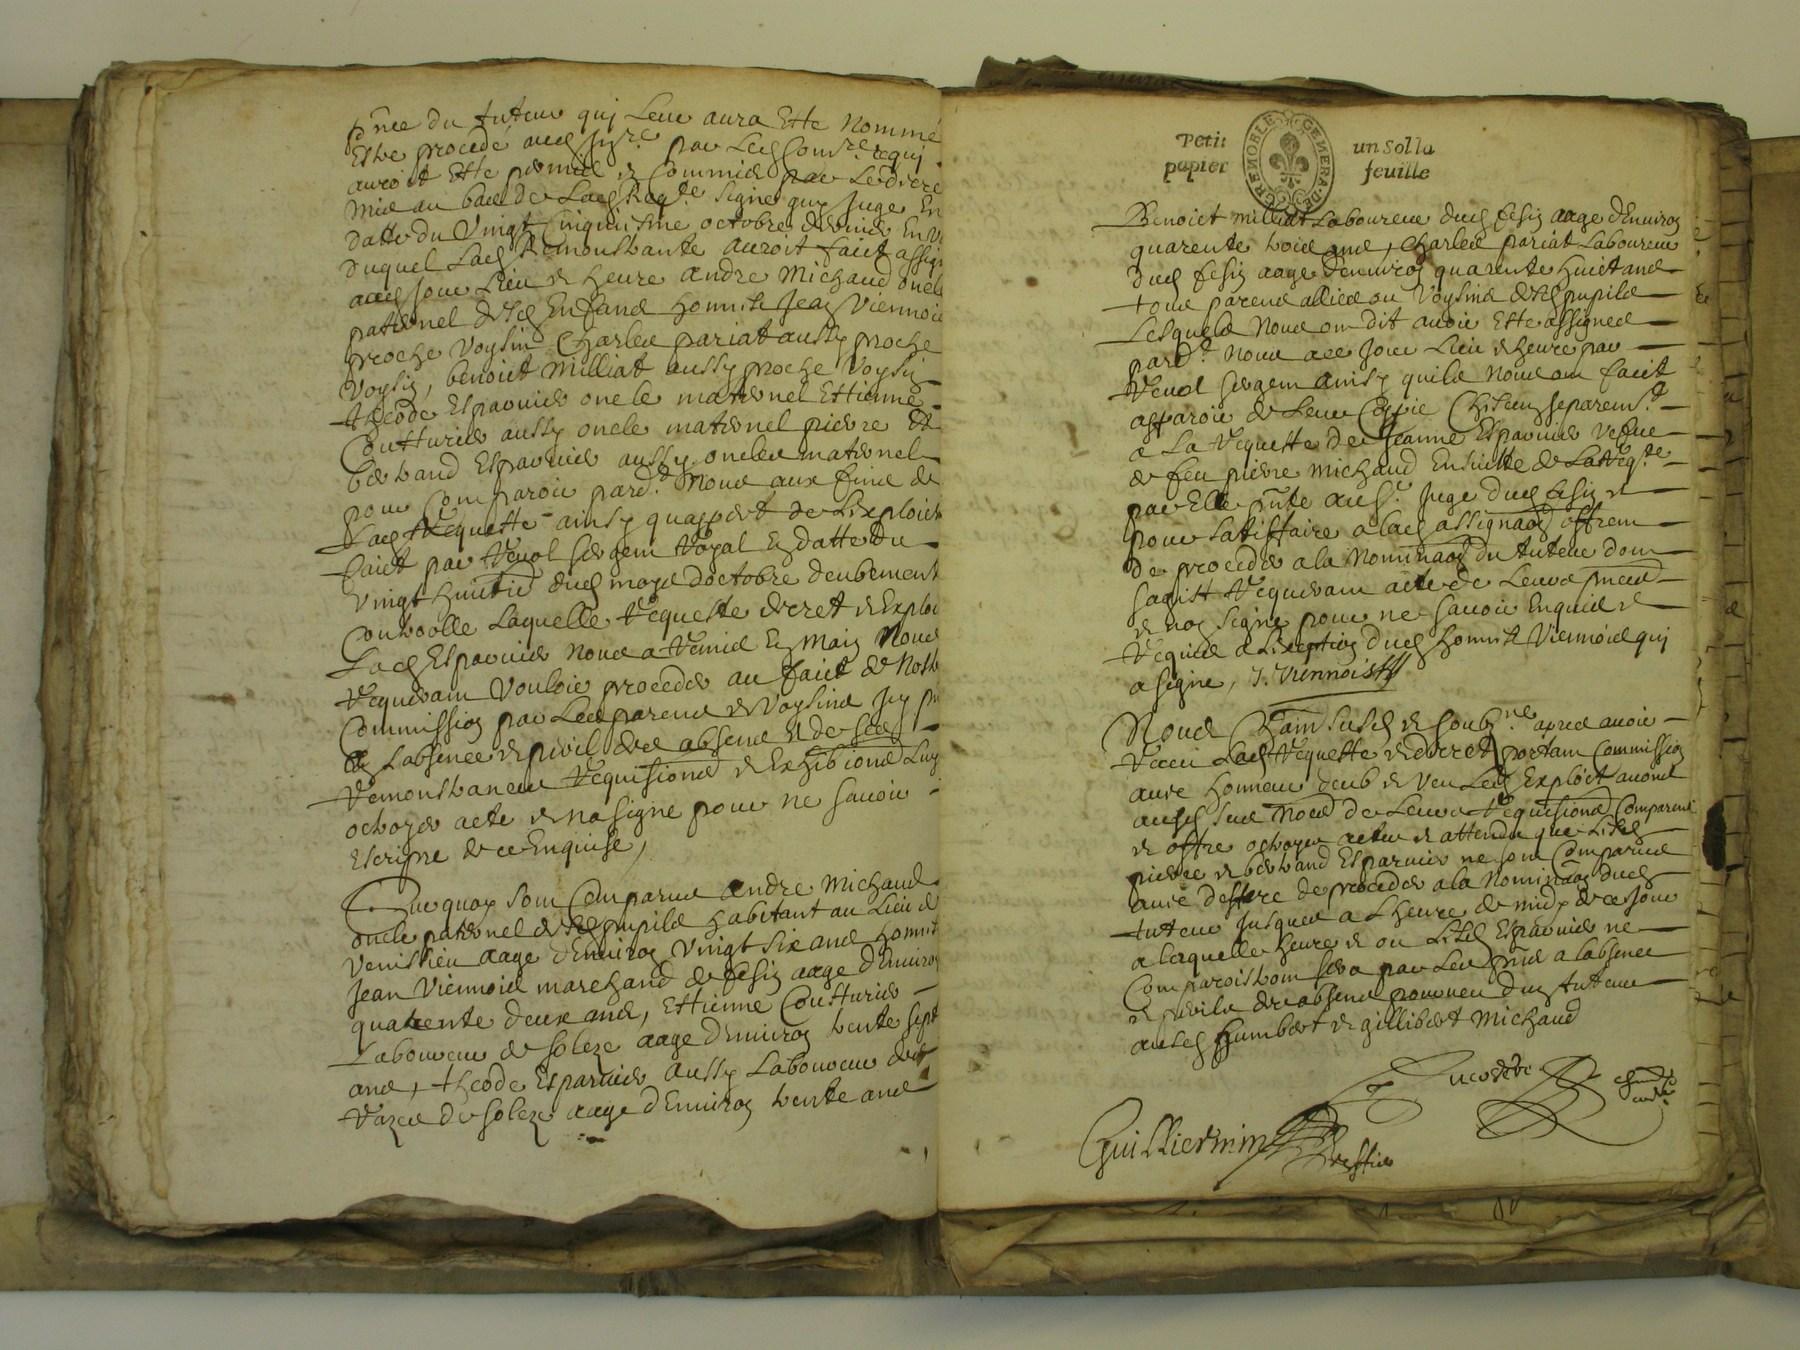 p̃nce du tuteur quj Leur aura Este Nommé
Estre procedé aud
auroit Este permis et Commis par Le decre
Mis au bas de Lad Reqte signe guy Juge En
datte du Vingt Cinquiesme octobre dernier En V
duquel Lad Remonstrante auroit faict assign
aud Jour Lieu et heure andre Michaud oncle
paternel desd Enfans honneste Jean Viennois
proche Voysin Charles pariat aussy proche
Voysin, benoict Milliat aussy proche Voysin
theode Esparuier oncle maternel Estienne
Coutturier aussy oncle maternel pierre et
bertrand Esparuier aussy oncles maternel
pour Comparoir pard.t Nous aux fins de
Lad Requeste ainsy quappert de Lexploict
faict par Revol sergent Royal En datte du
Vingt huictie dud moys doctobre deubement
Controolle Laquelle Requeste decret et Exploi
Lad Esparuier Nous a Remis En main Nous
Requerant Vouloir proceder au faict de Nostr
Commission par Les parens et Voysins Icy p
En Labsence et peril des absens et de ses
Remonstrances Requisitions et Exhibitions Luy
octroyer acte et na signe pour ne sauoir
Escripre de ce Enquise,
Surquoy sont Comparus andre Michaud
oncle paternel desd pupils habitant au Lieu de
Venissieu aage denuiron Vingt six ans honnest
Jean Viennois marchand de fesin aage denuiron
quarente deux ans, Estienne Coutturier
Laboureur de soleze aage denuiron trente sept
ans, theode Esparuier aussy Laboureur dud
de soleze aage denuiron trente ans
Petit papier
un Sol la feuille
GRENOBLE GENERA. DE
Benoict Milliat Laboureur dud fesin aage denuiron
quarente trois ans, Charles pariat Laboureur
dud fesin aage denuiron quarente huict ans
tous parens allies ou Voysins desd pupils
Lesquels Nous ont dit auoir Este assignes
pard.t Nous a ce Jour Lieu et heure par
Revol sergent ainsy quils Nous ont faict
aparoir de Leur Coppie Chascung separemt
a La Requeste de Jeanne Esparuier Vefue
de feu pierre Michaud Ensuitte de La Reqte
par Elle pñte au sr Juge dud fesin et
pour satisffaire a lad assignaõn offrent
de proceder a la Nominaõn du tuteur dont
sagist Requerant acte de Leurs
et non signe pour ne sauoir Enquis et
Requis a Lexeption dud honneste Viennois quj
a signe, J. Viennois
Nous Chãin susd et soubne apres auoir
Receu Lad Requeste et decret portant Commission
auec honneur deub et Veu Led Exploict auons
ausd sieurs Nous de Leurs Requisitions Comparans
et offre octroyer actes et attendu que Lesd
pierre et bertrand Esparuier ne sont Comparus
auec deffere de proceder a la Nominaõn dud
tuteur Jusques a Lheure de midy de ce Jour
a laquelle heure et ou Lesd Esparuier ne
Comparoistront sera par Les pñs a labsence
et perils des absens pourueu dun tuteur
ausd humbert et gillibert Michaud
Guillermin
Greffier